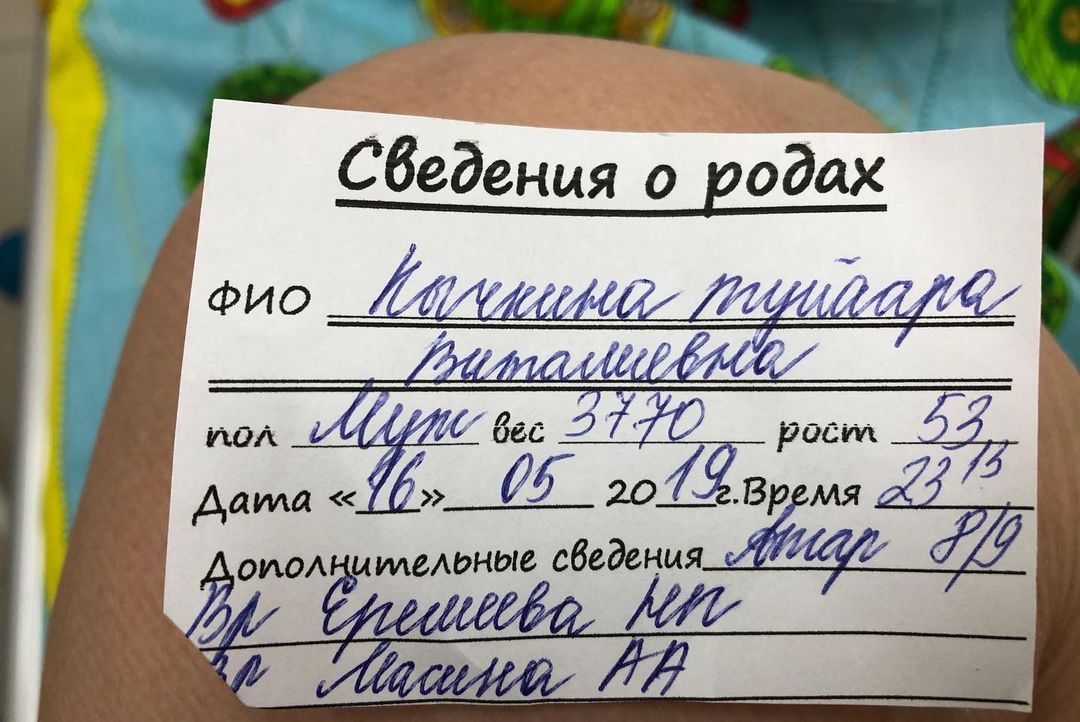 Сведения о родах
ФИО Кычкина Туйаара
Виталиевна
пол Муж вес 3770 рост 53
Дата «16» 05 2019г. Время 23 15
Дополнительные сведения Апгар 8/9
Вр Еремеева НП
Вр Масина АА